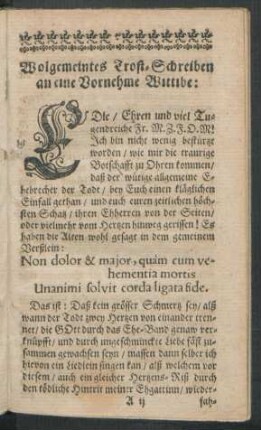 Wolgemeintes Trost-Schreiben
an eine Vornehme Wittibe:
EDle / Ehren und viel Tu-
gendreiche Fr. M. Z. J. O. M!
Ich bin nicht wenig bestürzt
worden / wie mir die traurige
Botschafft zu Ohren kommen /
daß der würige allgemeine E-
hebrecher der Todt / bey Euch einen kläglichen
Einfall gethan / und euch euren zeitlichen höch-
sten Schatz / ihren Eheherren von der Seiten /
oder vielmehr vom Hertzen hinweg geriffen! Es
haben die Alten wohl gesagt in dem gemeinem
Verßlein:
Non dolor & major, quàm cum ve-
hementia mortis
Unanimi solvit corda ligata fide.
Das ist: Daß kein grösser Schmertz sey / alß
wann der Todt zwey Hertzen von einander tren-
net / die GOtt durch das Ehe-Band genaw ver-
knüpfft / und durch ungeschminckte Liebe säst zu-
sammen gewachsen seyn / massen dann selber ich
hievon ein Liedlein singen kan / alß welchem vor
diesem / auch ein gleicher Hertzens-Riß durch
den tödliche Hintrit meiner Ehgattinn / wieder-
A ij
fah-